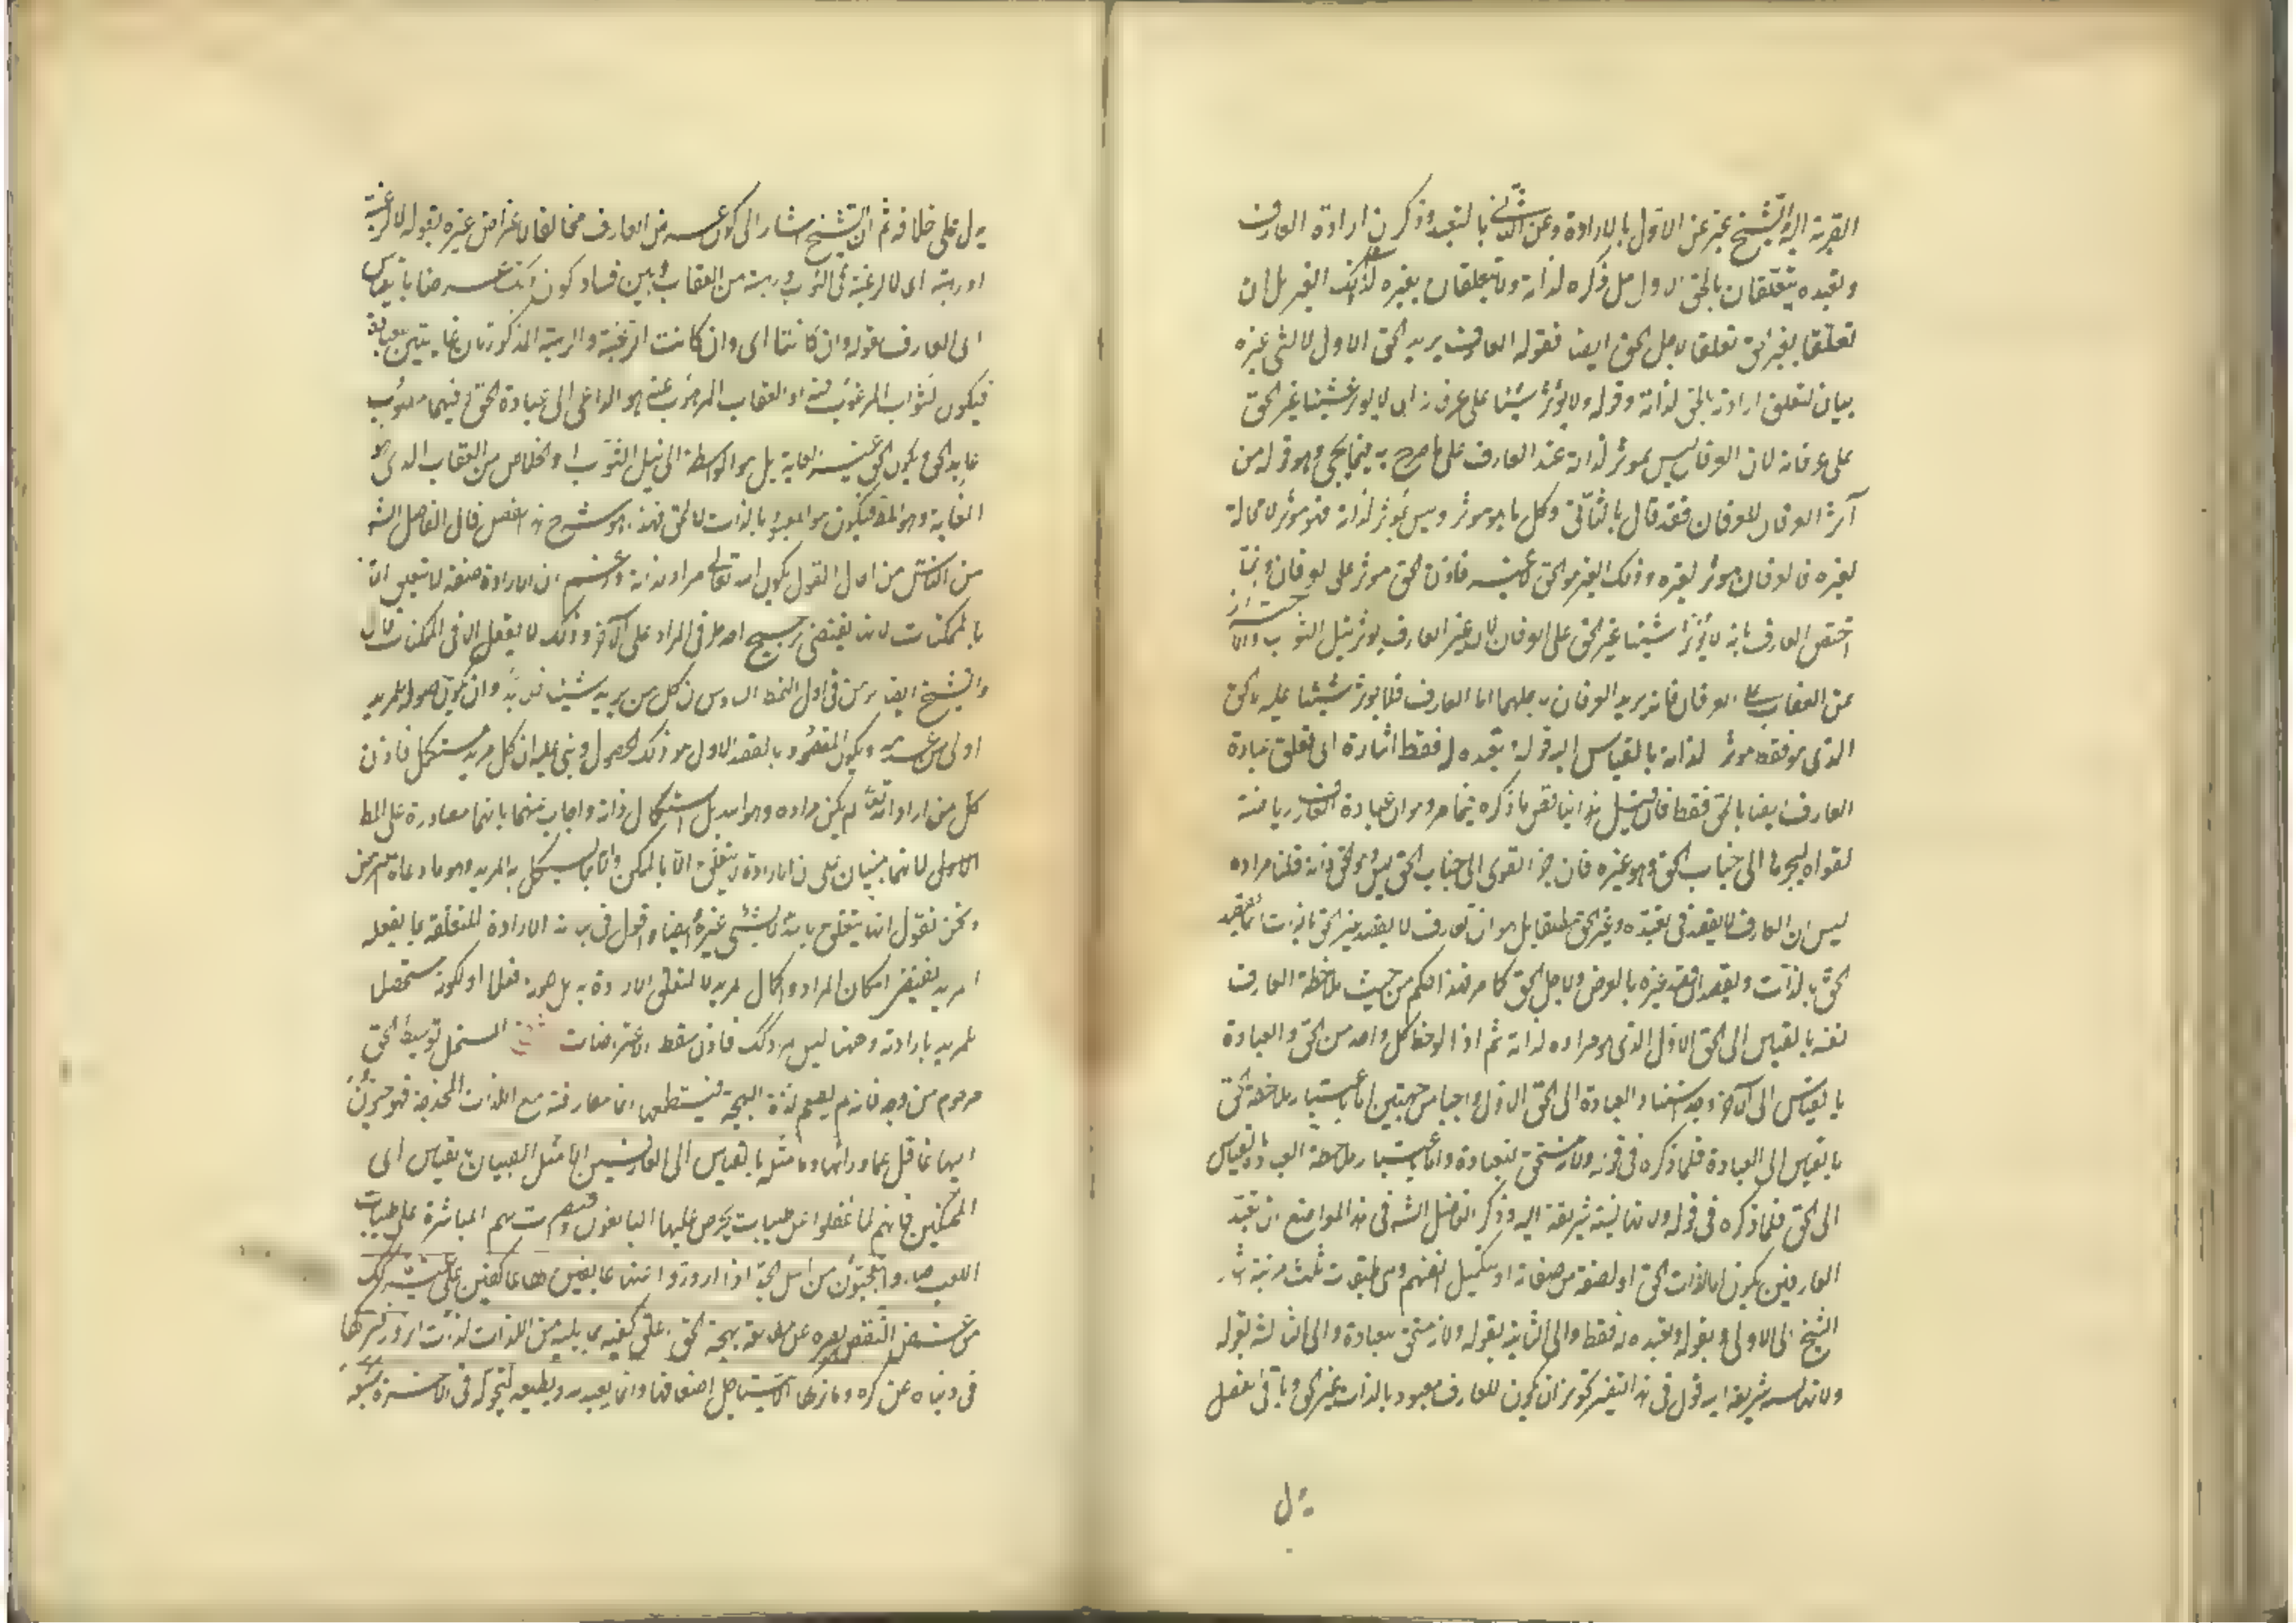 القربة اليه والشيخ عبر عن الاول بالارادة وعن الثانى بالتعبد وذكر ان ارادة العارف
وتعبده يتعلقان بالحق الاول جل ذكره لذاته ولا يتعلقان بغيره لذات ذلك الغير بل ان
تعلقا بغير الحق تعلقا لاجل الحق ايضا فقوله العارف يريد الحق الاول لا لشئ غيره
بيان لتعلق ارادته بالحق لذاته وقوله ولا يؤثر شيئا على عرفانه اى لا يؤثر شيئا غير الحق
على عرفانه لان العرفان ليس بموثر لذاته عند العارف على ما صرح به فيما يجئ وهو قوله من
آثر العرفان للعرفان فقد قال بالثانى وكل ما هو موثر وليس بموثر لذاته فهو موثر لا محالة
لغيره فالعرفان موثر لغيره وذلك الغير هو الحق لا غير فاذن الحق موثر على العرفان وانما
اختص العارف بانه لا يؤثر شيئا غير الحق على العرفان لان غير العارف يوثر نيل الثواب والاحتراز
عن العقاب على العرفان فانه يريد العرفان لاجلهما اما العارف فلا يوثر شيئا عليه الا الحق
الذى هو فقط موثر لذاته بالقياس اليه قوله وتعبده له فقط اشارة الى تعلق عبادة
العارف ايضا بالحق فقط فان قيل هذا يناقض ما ذكره فيما مر وهو ان عبادة العارف رياضة
لقواه ليجرها الى جناب الحق وهو غيره فان جر القوى الى جناب الحق ليس هو الحق ذاته قلنا مراده
ليس ان العارف لا يقصد فى تعبده غير الحق مطلقا بل هو ان العارف لا يقصد غير الحق بالذات انما يقصد
الحق بالذات ويقصد ان قصد غيره بالعرض ولاجل الحق كما مر فهذا حكم من حيث ملاحظة العارف
نفسه بالقياس الى الحق الاول الذى هو مراده لذاته ثم اذا لوحظ كل واحد من الحق والعبادة
بالقياس الى الآخر وجد استناد العبادة الى الحق الاول واجبا من جهتين اما باعتبار ملاحظة الحق
بالقياس الى العبادة فلما ذكره فى قوله ولانه مستحق للعبادة واما باعتبار ملاحظة العبادة بالقياس
الى الحق فلما ذكره فى قوله ولانها نسبة شريفة اليه وذكر الفاضل الشه فى هذا الموضع ان تعبد
العارفين يكون اما لذات الحق او لصفة من صفاته او لتكميل انفسهم وهى طبقات ثلث مرتبة اشار
الشيخ الى الاولى بقوله وتعبده له فقط والى الثانية بقوله ولانه مستحق للعبادة والى الثالثة بقوله
ولانها نسبة شريفة اليه اقول فى هذا التفسير تجويز ان يكون للعارف معبود بالذات غير الحق وباقى الفصل
يدل
يدل على خلافه ثم ان الشيخ اشار الى كون غرض العارف مخالفا لاغراض غيره بقوله لا لرغبة
او رهبة اى لا لرغبة فى الثواب ورهبة من العقاب وبين فساد كون ذلك غرضا بالقياس
الى العارف بقوله وان كانتا اى وان كانت الرغبة والرهبة المذكورتان غايتين
فيكون الثواب المرغوب فيه او العقاب المرهوب عنه هو الداعى الى عبادة الحق وفيهما مطلوب
عابد الحق ويكون الحق غير الغاية بل هو الواسطة الى نيل الثواب او الخلاص من العقاب الذى هو
الغاية وهو المط فيكون هو المعبود بالذات لا الحق فهذا هو شرح هذا الفصل قال الفاضل الشه
من الناس من احال القول بكون الله تعالى مرادا لذاته وزعم ان الارادة صفة لا تتعلق الا
بالممكنات لانها تقتضى ترجيح احد طرفى المراد على الآخر وذلك لا يعقل الا فى الممكنات قال
والشيخ ايضا برهن فى اول النمط السادس ان كل من يريد شيئا فلابد وان يكون حصوله للمريد
اولى من عدمه ويكون المقصود بالقصد الاول هو ذلك الحصول وبنى عليه ان كل مريد مستكمل فاذن
كل من اراد الله تعالى لم يكن مراده هو الله بل استكمال ذاته واجاب عنهما بانهما مصادرة على المط
الاولى لانهما مبنيان على ان الارادة لا تتعلق الا بالممكن والا بما يستكمل به المريد وهو ما ادعاه المعترض
ونحن نقول انها تتعلق بالله لا لشئ غيره ايضا واقول فى بيانه الارادة المتعلقة بما يفعله
المريد تقتضى امكان المراد واكمال المريد لا لتعلق الارادة به بل لكونه فعلا او لكونه مستحصلا
للمريد بارادته وههنا ليس المراد كك فاذن سقط الاعتراضات المستحل توسيط الحق
مرحوم من وجه فانه لم يطعم لذة البهجة فيستطعمها انما معارفته مع اللذات المخدجة فهو حنون
اليها غافل عما ورائها وما مثله بالقياس الى العارفين الا مثل الصبيان بالقياس الى
المحنكين فانهم لما غفلوا عن طيبات يحرص عليها البالغون واقتصرت بهم المباشرة على طيبات
اللعب صاروا يتعجبون من اهل الجد اذا ازوروا عنها عائفين لها عاكفين على غيرها كذلك
من غض النقص بصره عن مطالعة بهجة الحق اعلق كفيه بما يليه من اللذات لذات الزور فتركها
فى دنياه عن كره وما تركها الا ليستاجل اضعافها وانما يعبد الله ويطيعه ليخوله فى الآخرة شبعه